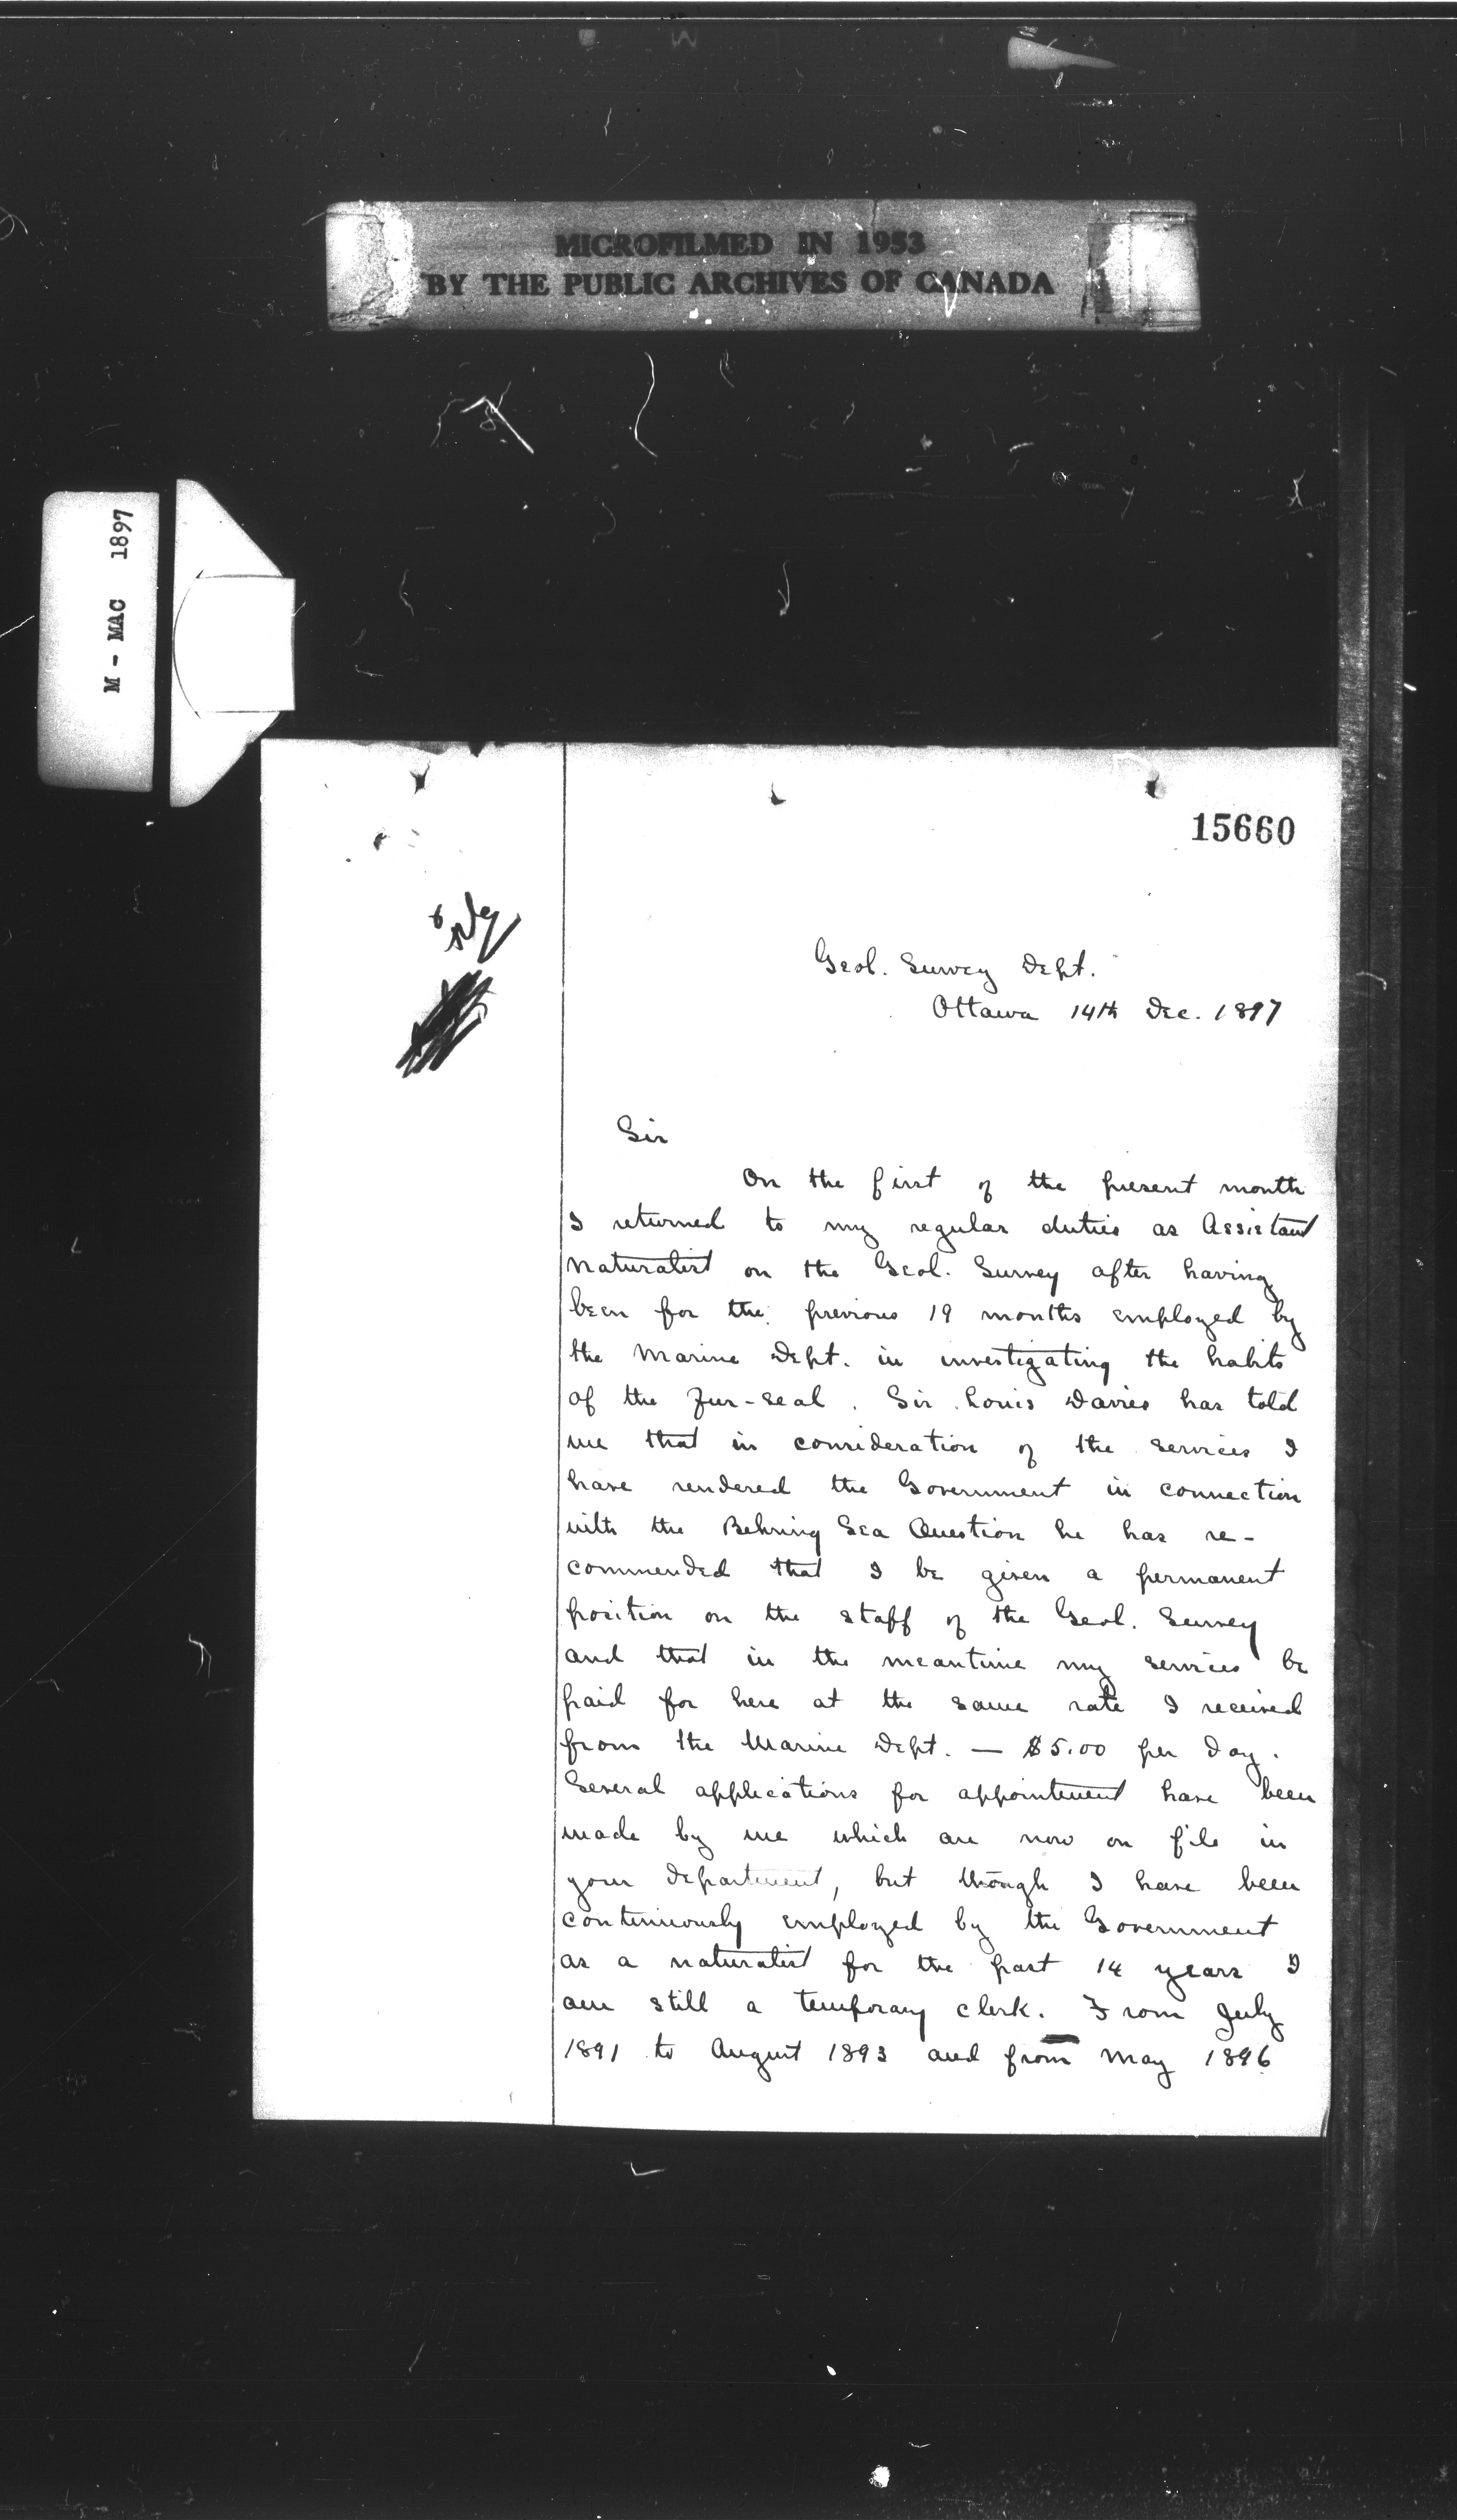 MICROFILMED IN 1953
BY THE PUBLIC ARCHIVES OF CANADA
M - MAC 1897
15660
Geol. Survey Dept.
Ottawa 14th Dec. 1897
Sir
On the first of the present month
I returned to my regular duties as Assistant
Naturalist on the Geol. Survey after having
been for the previous 19 months employed by
the Marine Dept. in investigating the habits
of the Fur-Seal. Sir Louis Davies has told
me that in consideration of the services I
have rendered the Government in connection
with the Behring Sea Question he has re-
commended that I be given a permanent
position on the staff of the Geol. Survey
and that in the meantime my services be
paid for here at the same rate I received
from the Marine Dept. — $5.00 per day.
Several applications for appointment have been
made by me which are now on file in
your department, but though I have been
continuously employed by the Government
as a naturalist for the past 14 years I
am still a temporary clerk. From July
1891 to August 1893 and from May 1896